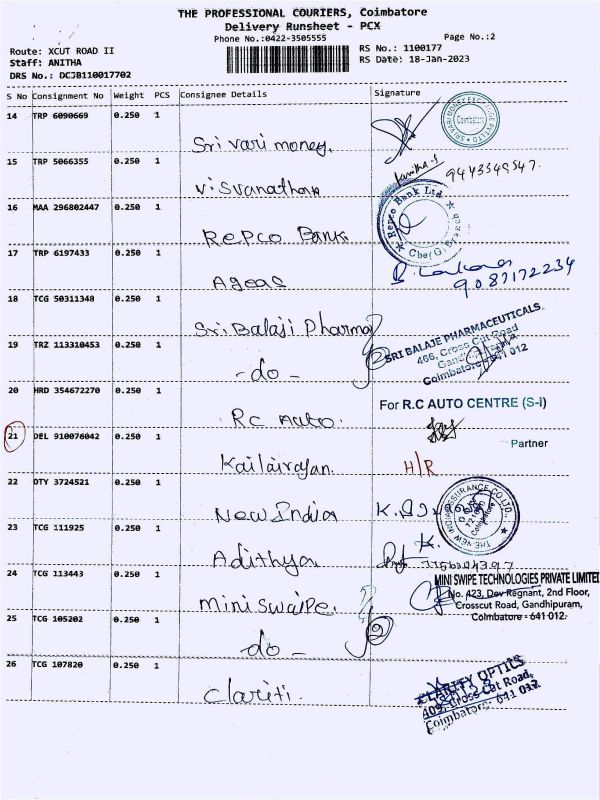 THE PROFESSIONAL COURIERS, Coimbatore
Delivery Runsheet - PCX
Phone No.:0422-3505555
Page No.:2
Route: XCUT ROAD II
RS No.: 1100177
Staff: ANITHA
RS Date: 18-Jan-2023
DRS No.: DCJB110017702
S No Consignment No Weight PCS Consignee Details Signature
14 TRP 6090669 0.250 1
Sri vari money.
Coimbatore
15 TRP 5066355 0.250 1
9443549547.
Visvanathan
16 MAA 296802447 0.250 1
Repco Bank Ltd.
Cbe(G) Branch
Repco Bank
17 TRP 6197433 0.250 1
9087172234
Ageas
18 TCG 50311348 0.250 1
Sri Balaji Pharma
19 TRZ 113310453 0.250 1
SRI BALAJE PHARMACEUTICALS.
466, Cross Cut Road
Coimbatore - 641 012
- do -
20 HRD 354672270 0.250 1
For R.C AUTO CENTRE (S-i)
Rc Auto.
21 DEL 910076042 0.250 1
Partner
Kailairajan.
H/R
22 DTY 3724521 0.250 1
New India
THE NEW INDIA ASSURANCE CO.LTD.,
23 TCG 111925 0.250 1
Adithya
24 TCG 113443 0.250 1
MINI SWIPE TECHNOLOGIES PRIVATE LIMITED
No. 423, Dev Regnant, 2nd Floor,
Crosscut Road, Gandhipuram,
Coimbatore - 641 012.
Miniswaipe.
25 TCG 105202 0.250 1
do -
26 TCG 107820 0.250 1
CLARITY OPTICS
409, Cross Cut Road,
Coimbatore: 641 012.
Clariti.